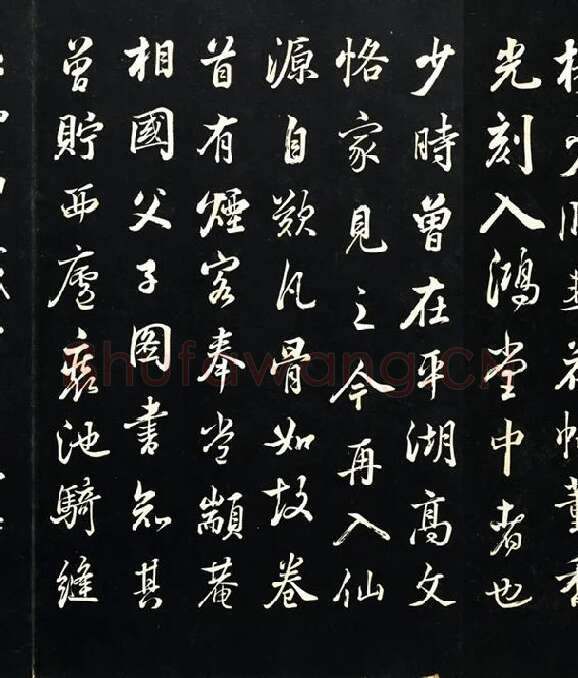 帖董香
光刻入鴻堂中者也
少時曾在平湖高文
恪家見之今再入仙
源自歎凡骨如故卷
首有煙客奉常顓菴
相國父子圖書知其
曾貯西廬池騎縫
shufawang.CN